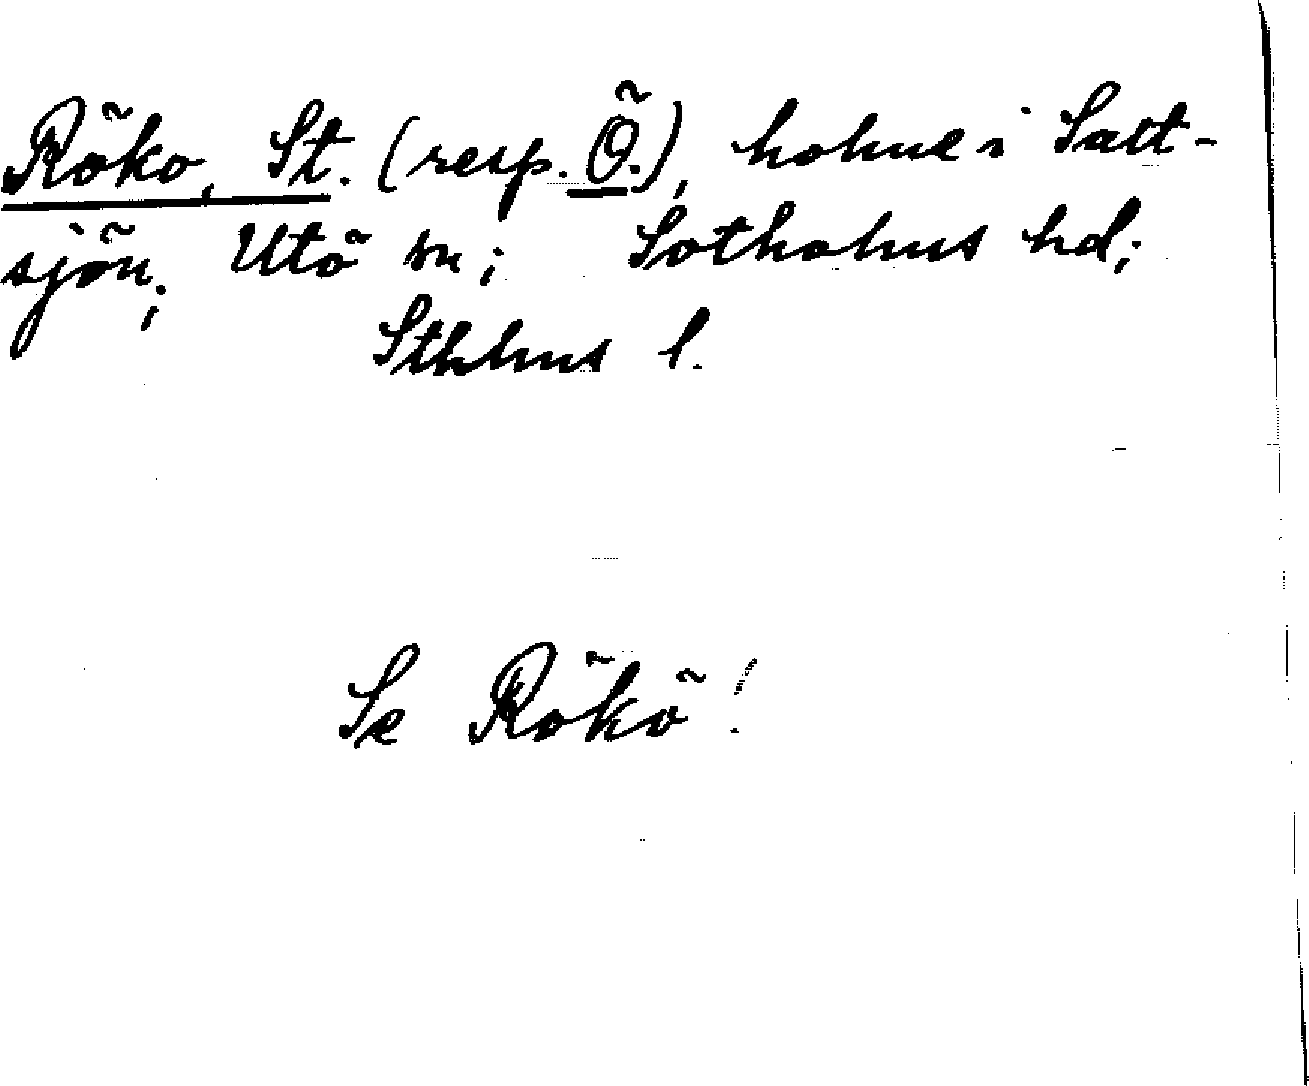 Röko, St. (resp. Ö.), holme i Salt-
sjön; Utö sn; Sotholms hd;
Sthlms l.
Se Rökö!